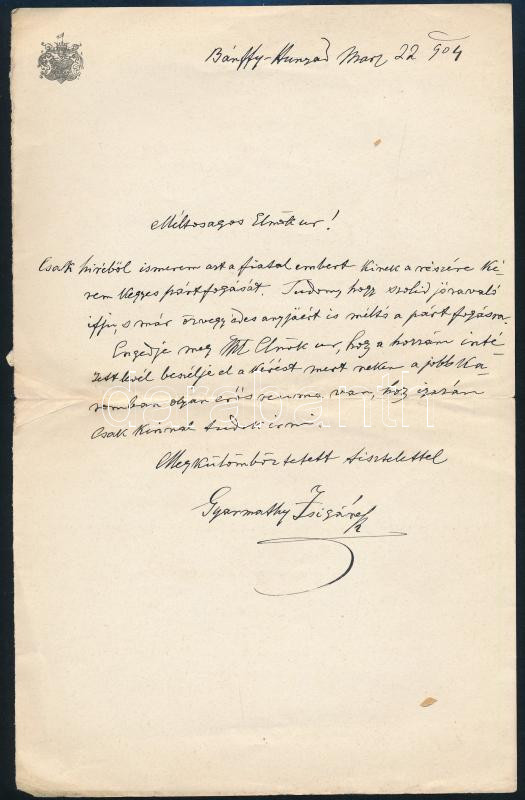 Bánffy-Hunyad Marz 22 904
Méltoságos Elnök ur!
Csak hiréből ismerem azt a fiatal embert kinek a részére ké-
rem kegyes pártfogását. Tudom, hogy szolid jóravaló
ifju, s már özvegy édes anyjáért is méltó a pártfogásra.
Engedje meg Mt Elnök ur, hogy a hozzám inté-
zett levél beszélje el a kérést mert nekem a jobb ka-
romban olyan erős reuma van, hogy igazán
csak kinnal tudok irni.
Megkülömböztetett tisztelettel
Gyarmathy Zsigáné
darabanth